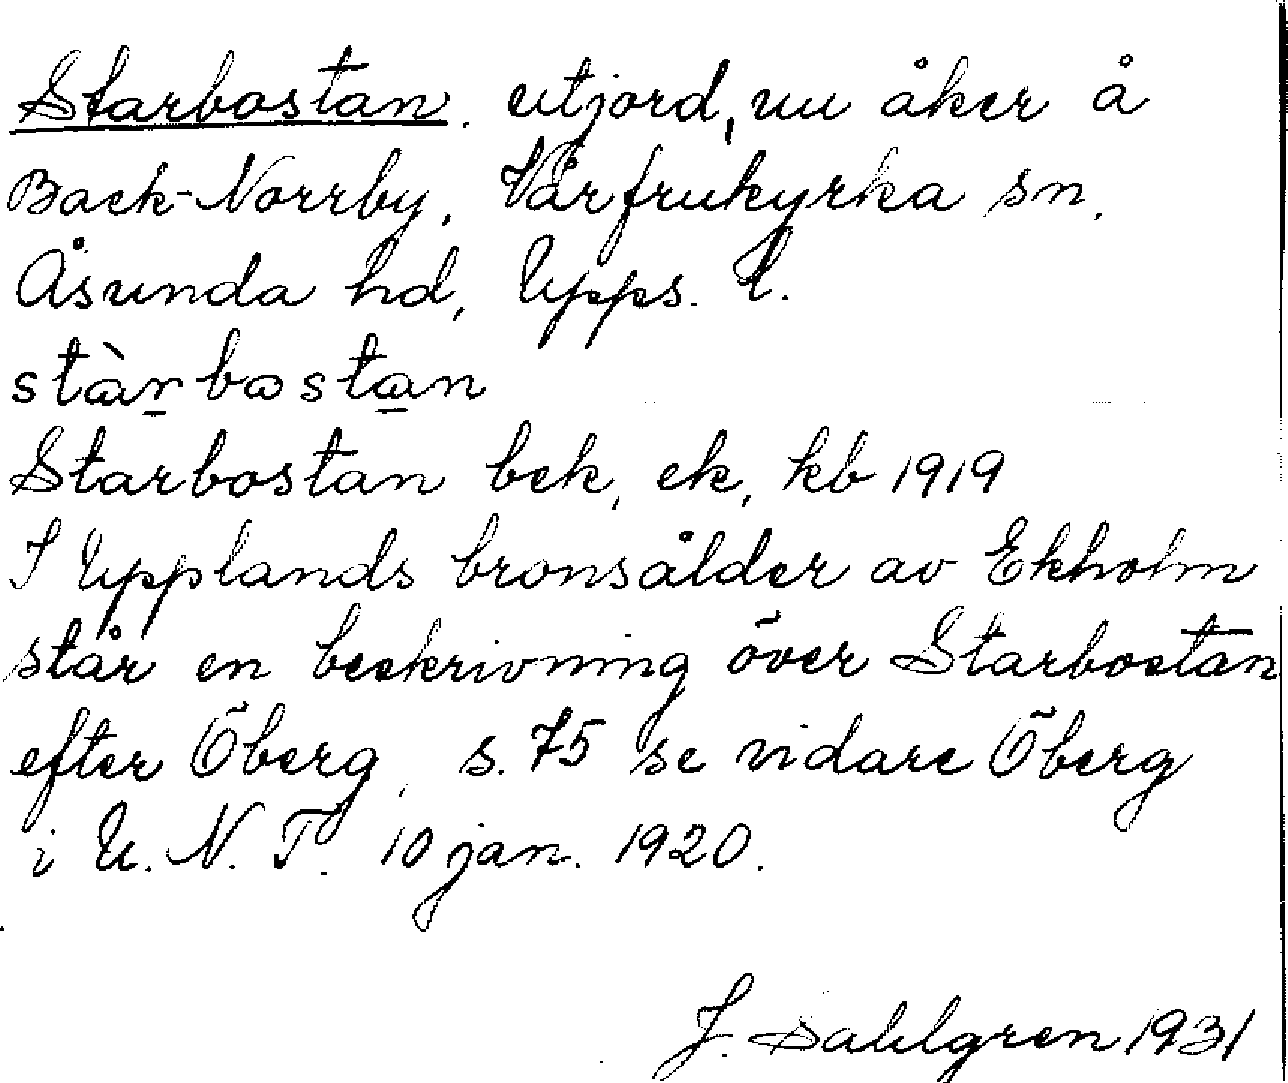 Starbostan. utjord, nu åker å
Back-Norrby, Vårfrukyrka sn.
Åsunda hd, Upps. l.
stàrbostan
Starbostan bek, ek, kb 1919
I Upplands bronsålder av Ekholm
står en beskrivning över Starbostan
efter Öberg, s. 75 se vidare Öberg
i U. N. T. 10 jan. 1920.
J. Sahlgren 1931